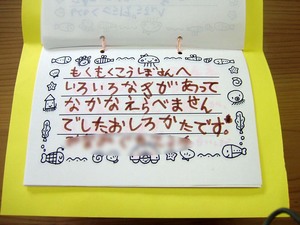 もくもくこうぼさんへ
いろいろなきがあって
なかなかえらべません
でしたおしろかたです。